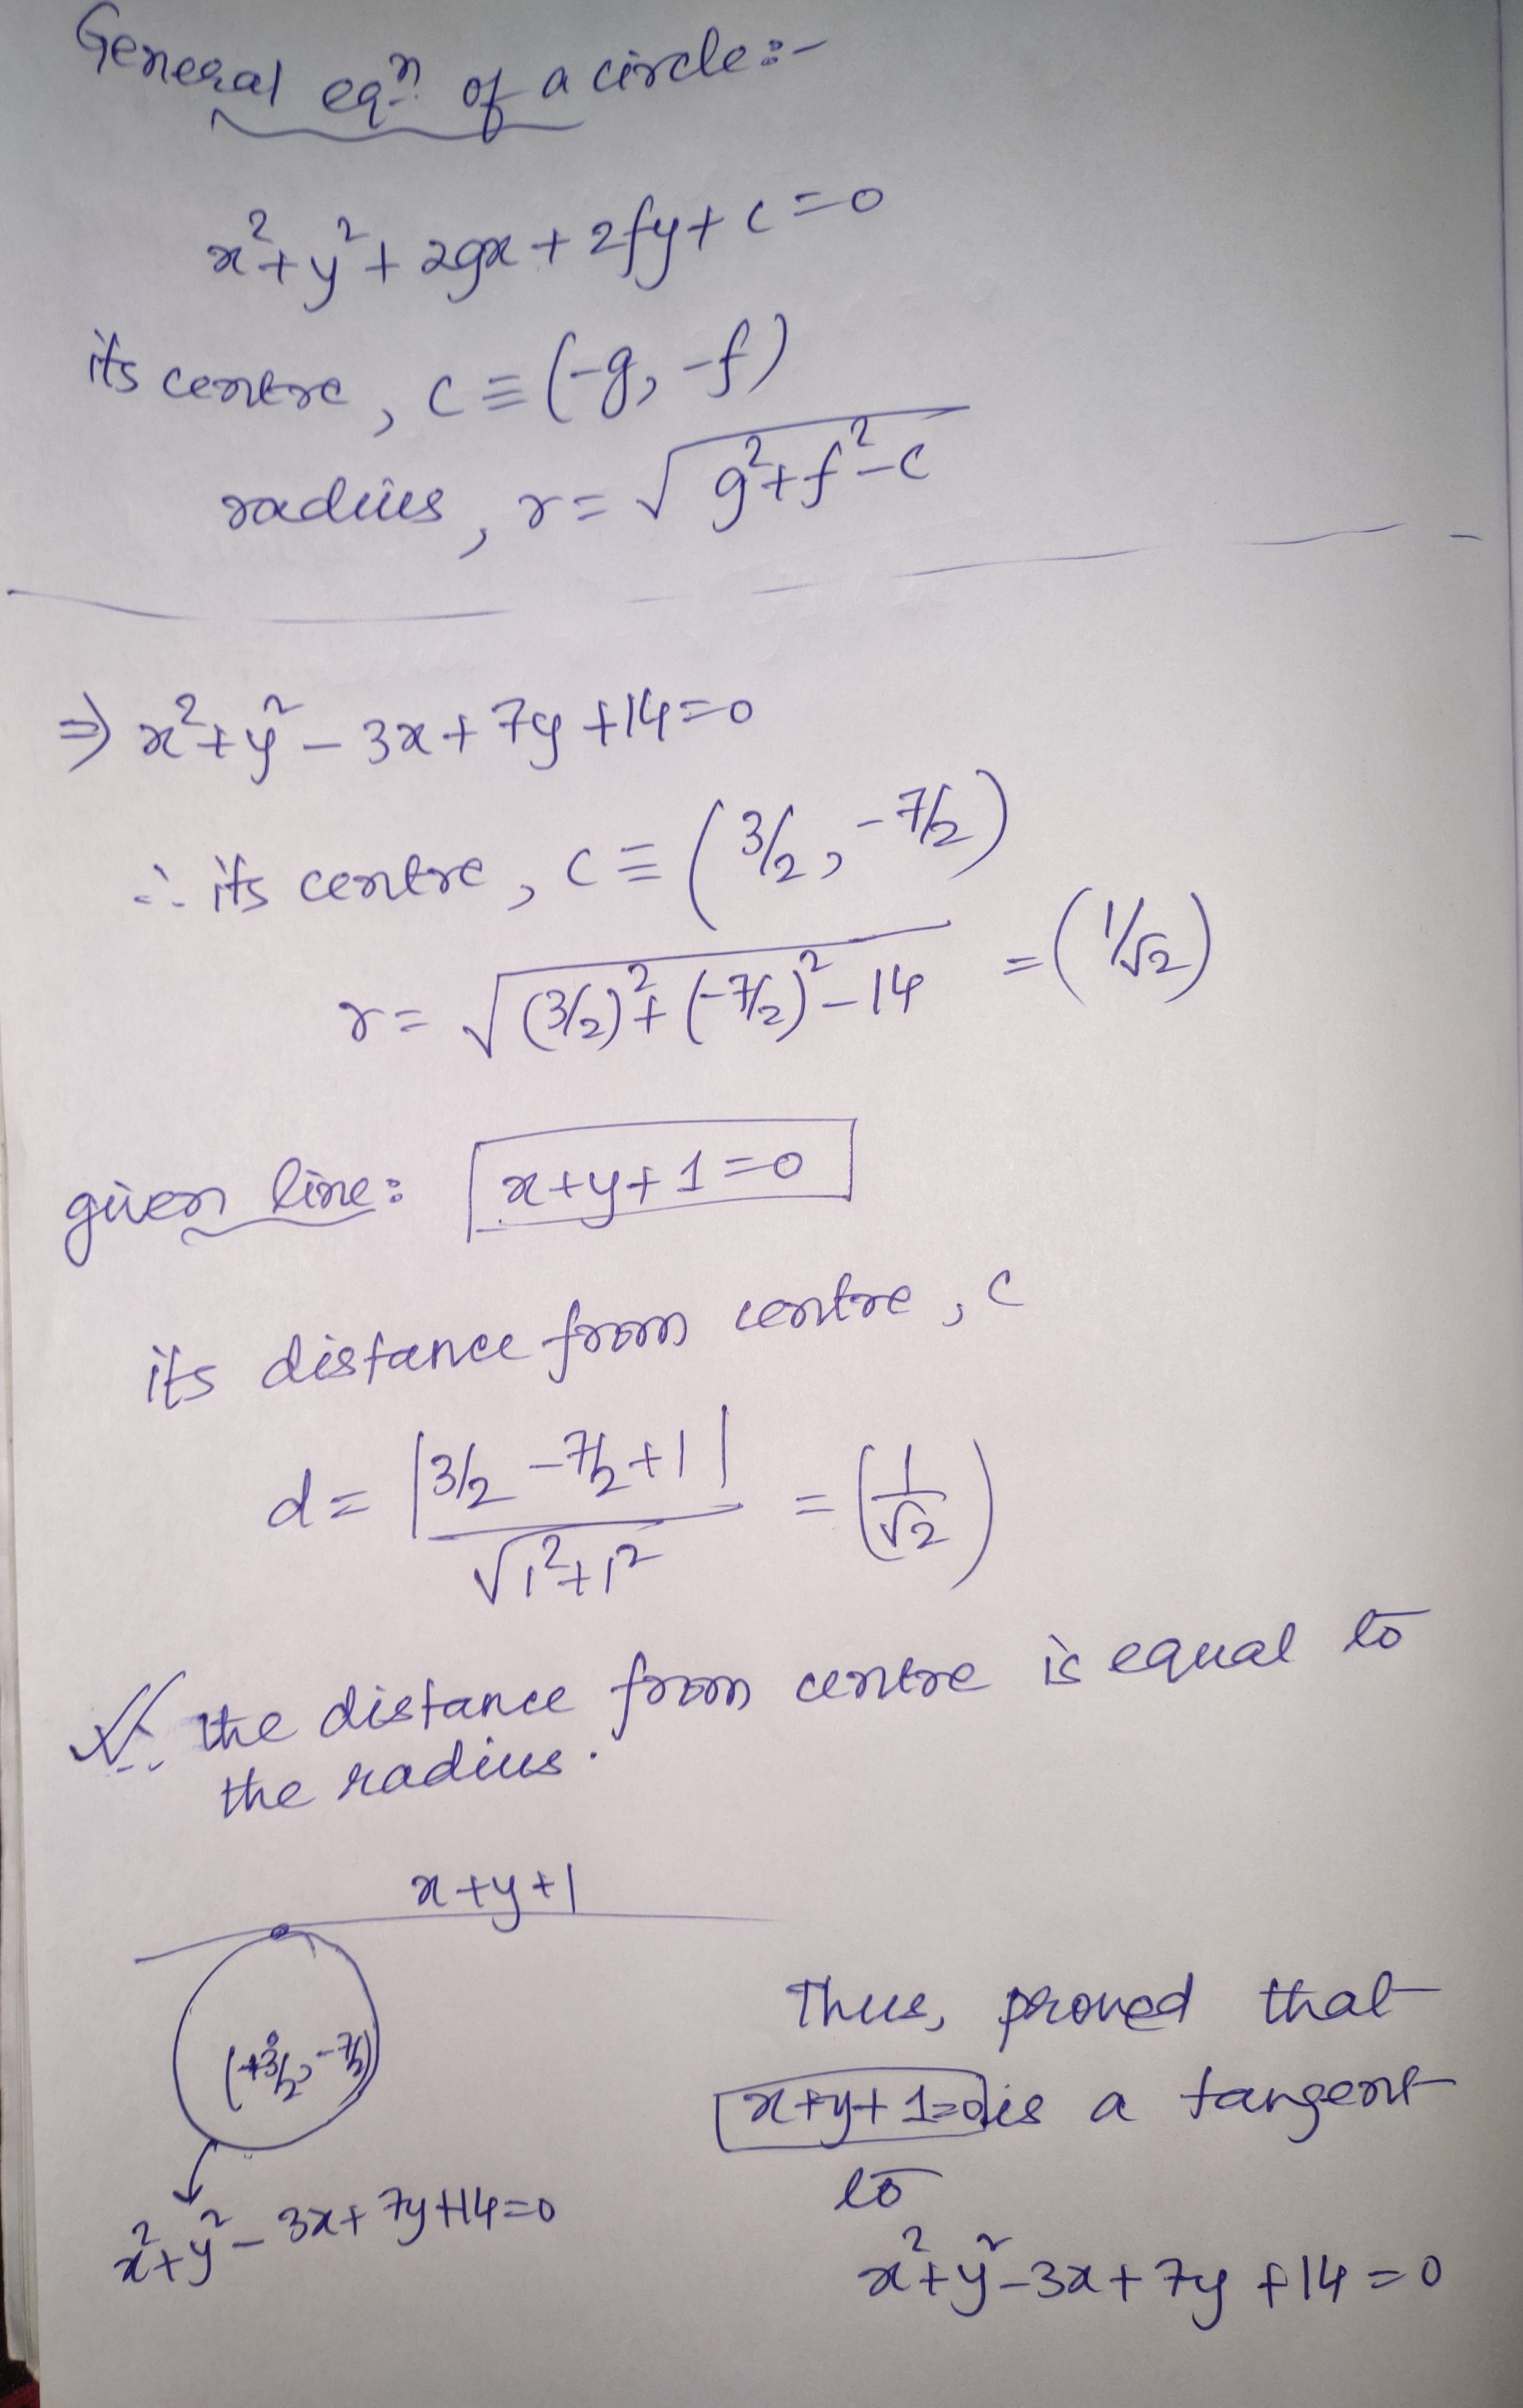 General eqⁿ. of a circle:-
x²+y²+2gx+2fy+c=0
its centre, c≡(-g, -f)
radius, r=√g²+f²-c
⇒ x²+y²-3x+7y+14=0
∴ its centre, c≡(3/2, -7/2)
r=√(3/2)²+(-7/2)²-14 =(1/√2)
given line: x+y+1=0
its distance from centre, c
d= |3/2 -7/2+1| / √1²+1² = (1/√2)
∴ the distance from centre is equal to
the radius.
x+y+1
(+3/2, -7/2)
x²+y²-3x+7y+14=0
Thus, proved that
x+y+1=0 is a tangent
to
x²+y²-3x+7y+14=0